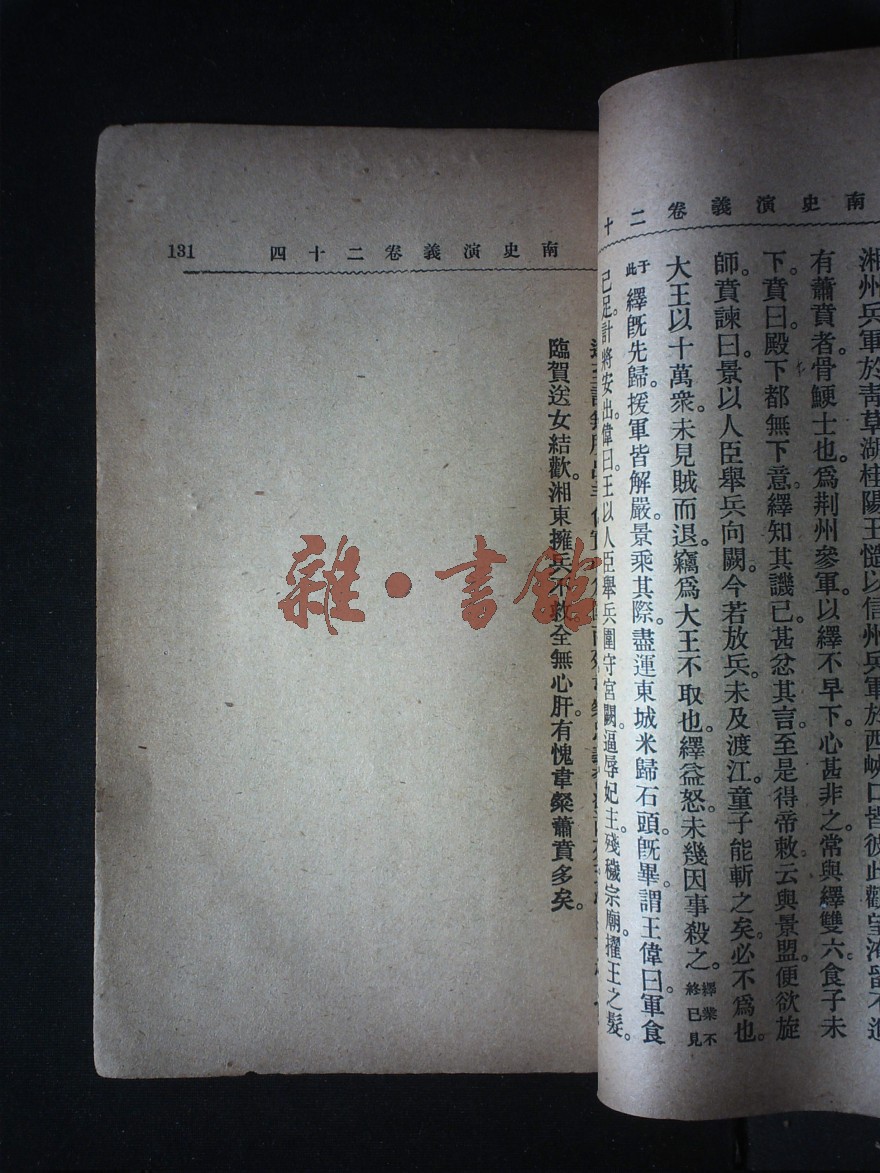 南史演義卷二十
湘州兵軍於青草湖桂陽王慥以信州兵軍於西峽口皆彼此觀望淹留不進
有蕭賁者。骨鯁士也。爲荆州參軍。以繹不早下。心甚非之。常與繹雙六食子未
下。賁曰。殿下都無下意。繹知其譏己。甚忿其言。至是得帝敕。云與景盟。便欲旋
師。賁諫曰。景以人臣舉兵向闕。今若放兵。未及渡江。童子能斬之矣。必不爲也。
大王以十萬衆。未見賊而退。竊爲大王不取也。繹益怒。未幾因事殺之。繹業不終已見
于此繹旣先歸。援軍皆解嚴。景乘其際。盡運東城米歸石頭。旣畢。謂王偉曰。軍食
已足。計將安出。偉曰。王以人臣舉兵。圍守宮闕。逼辱妃主。殘穢宗廟。擢王之髮。
131
南史演義卷二十四
臨賀送女結歡。湘東擁兵不救。全無心肝。有愧韋粲蕭賁多矣。
雜·書館